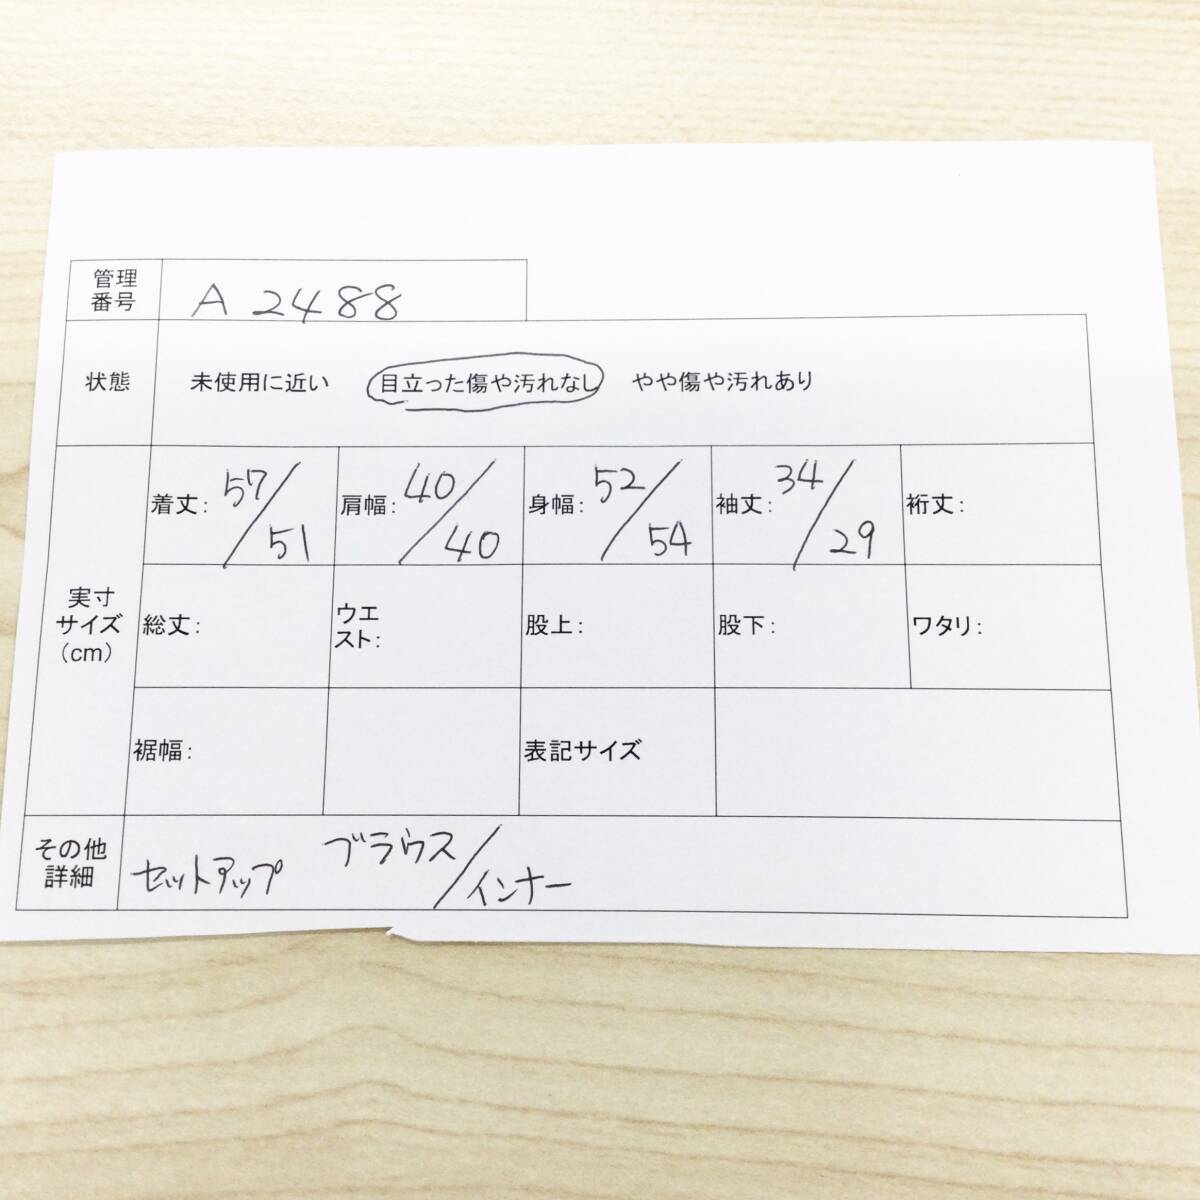 管理
番号
A 2488
状態
未使用に近い 目立った傷や汚れなし やや傷や汚れあり
実寸
サイズ
(cm)
着丈: 57/51
肩幅: 40/40
身幅: 52/54
袖丈: 34/29
裄丈:
総丈:
ウエ
スト:
股上:
股下:
ワタリ:
裾幅:
表記サイズ
その他
詳細
セットアップ ブラウス/インナー